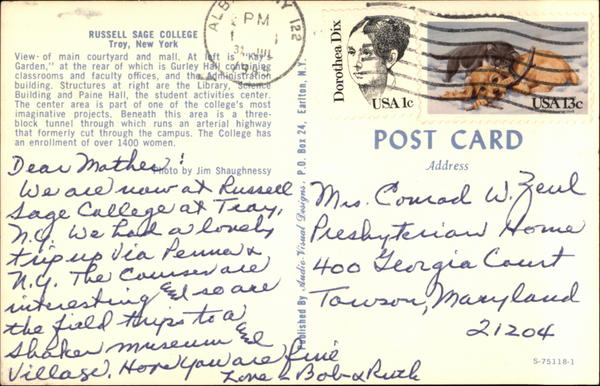 RUSSELL SAGE COLLEGE
Troy, New York
View of main courtyard and mall. At left is "Kay's
Garden," at the rear of which is Gurley Hall containing
classrooms and faculty offices, and the Administration
building. Structures at right are the Library, Science
Building and Paine Hall, the student activities center.
The center area is part of one of the college's most
imaginative projects. Beneath this area is a three-
block tunnel through which runs an arterial highway
that formerly cut through the campus. The College has
an enrollment of over 1400 women.
Photo by Jim Shaughnessy
Dear Mother:
We are now at Russell
Sage College at Troy,
N.Y. We had a lovely
trip up via Penna &
N.Y. The Courses are
interesting and so are
the field trips to a
Shaker museum and
Village. Hope you are fine
Love - Bob & Ruth
Published By Audio-Visual Designs, P.O. Box 24, Earlton, N.Y.
ALBANY NY 122
PM
31
Dorothea Dix
USA 1c
USA 13c
POST CARD
Address
Mrs. Conrad W. Zeul
Presbyterian Home
400 Georgia Court
Towson, Maryland
21204
S-75118-1